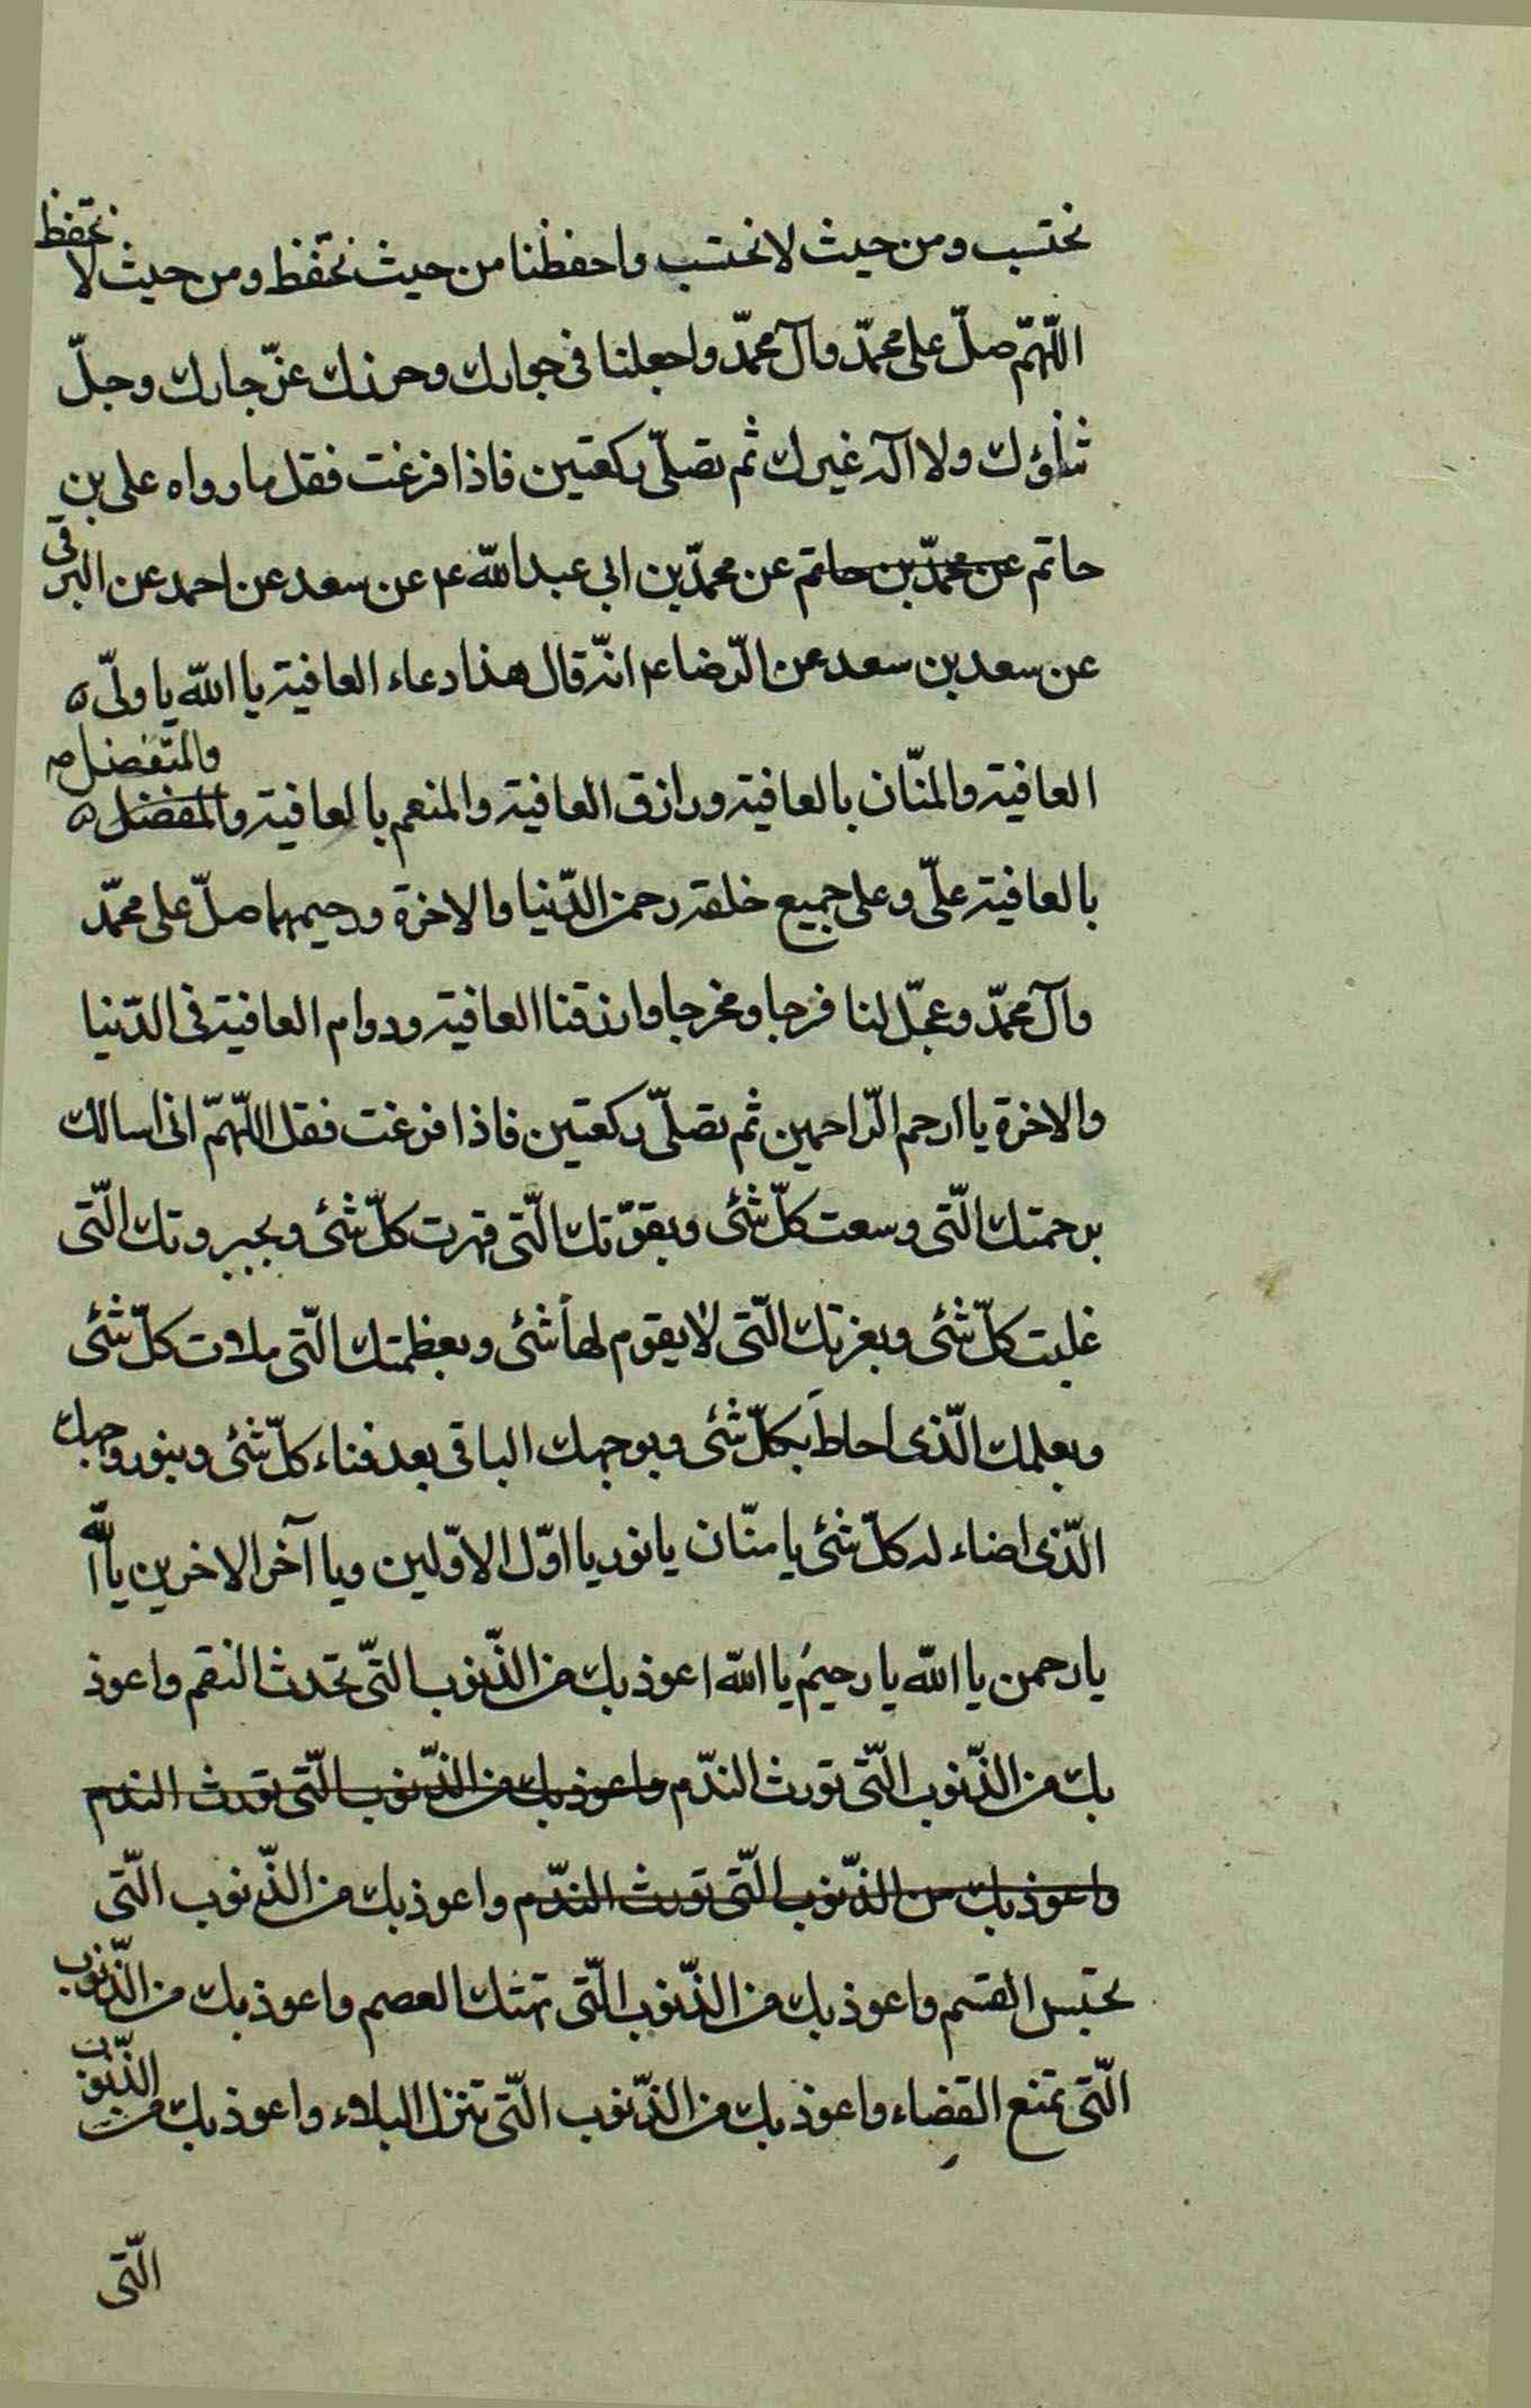 نحتسب ومن حيث لا نحتسب واحفظنا من حيث نحتفظ ومن حيث لا نحتفظ
اللّهمّ صلّ على محمّد وآل محمّد واجعلنا فى جوارك وحرزك عزّ جارك وجلّ
ثناؤك ولا اله غيرك ثم تصلّى ركعتين فاذا فرغت فقل ما رواه على بن
حاتم عن محمّد بن حاتم عن محمّد بن ابى عبد الله ع عن سعد عن احمد عن البرقى
عن سعد بن سعد عن الرّضا ع انّه قال هذا دعاء العافية يا الله يا ولىّ
العافية والمنّان بالعافية ورازق العافية والمنعم بالعافية والمفضل والمتفضل
بالعافية علىّ وعلى جميع خلقه رحمن الدّنيا والاخرة ورحيمهما صلّ على محمّد
وآل محمّد وعجّل لنا فرجا ومخرجا وارزقنا العافية ودوام العافية فى الدّنيا
والاخرة يا ارحم الرّاحمين ثم تصلّى ركعتين فاذا فرغت فقل اللّهمّ انى اسالك
برحمتك الّتى وسعت كلّ شئى وبقوّتك الّتى قهرت كلّ شئى وبجبروتك الّتى
غلبت كلّ شئى وبعزتك الّتى لا يقوم لها شئى وبعظمتك الّتى ملات كلّ شئى
وبعلمك الّذى احاط بكلّ شئى وبوجهك الباقى بعد فناء كلّ شئى وبنور وجهك
الّذى اضاء له كلّ شئى يا منّان يا نور يا اوّل الاوّلين ويا آخر الاخرين يا الله
يا رحمن يا الله يا رحيم يا الله اعوذ بك من الذّنوب التّى تحدث النقم واعوذ
بك من الذّنوب الّتى تورث النّدم واعوذ بك من الذّنوب الّتى تورث الندم
واعوذ بك من الذّنوب الّتى تورث النّدم واعوذ بك من الذّنوب الّتى
تحتبس القسم واعوذ بك من الذّنوب الّتى تهتك العصم واعوذ بك من الذّنوب
الّتى تمنع القضاء واعوذ بك من الذّنوب الّتى تنزل البلاء واعوذ بك من الذّنوب
الّتى